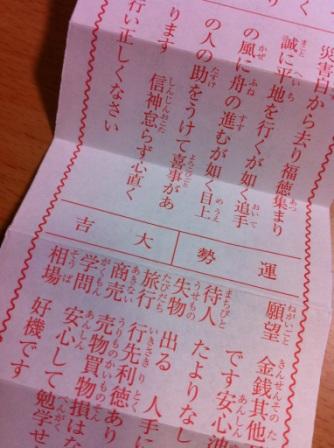 災害自から去り福徳集まり
誠に平地を行くが如く追手
の風に舟の進むが如く目上
の人の助をうけて喜事があ
ります 信神怠らず心直く
行い正しくなさい
運勢 大吉
願望 金銭其他
です安心
待人 たよりなし
失物 出る 人手に
旅行 行先利徳あり
商売 売物買物損はな
学問 安心して勉学せ
相場 好機です